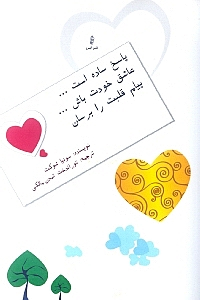 پاسخ ساده است ...
عاشق خودت باش ...
پیام قلبت را برسان
نویسنده: سونیا شوکت
ترجمه: نوراندخت نجفی مالکی